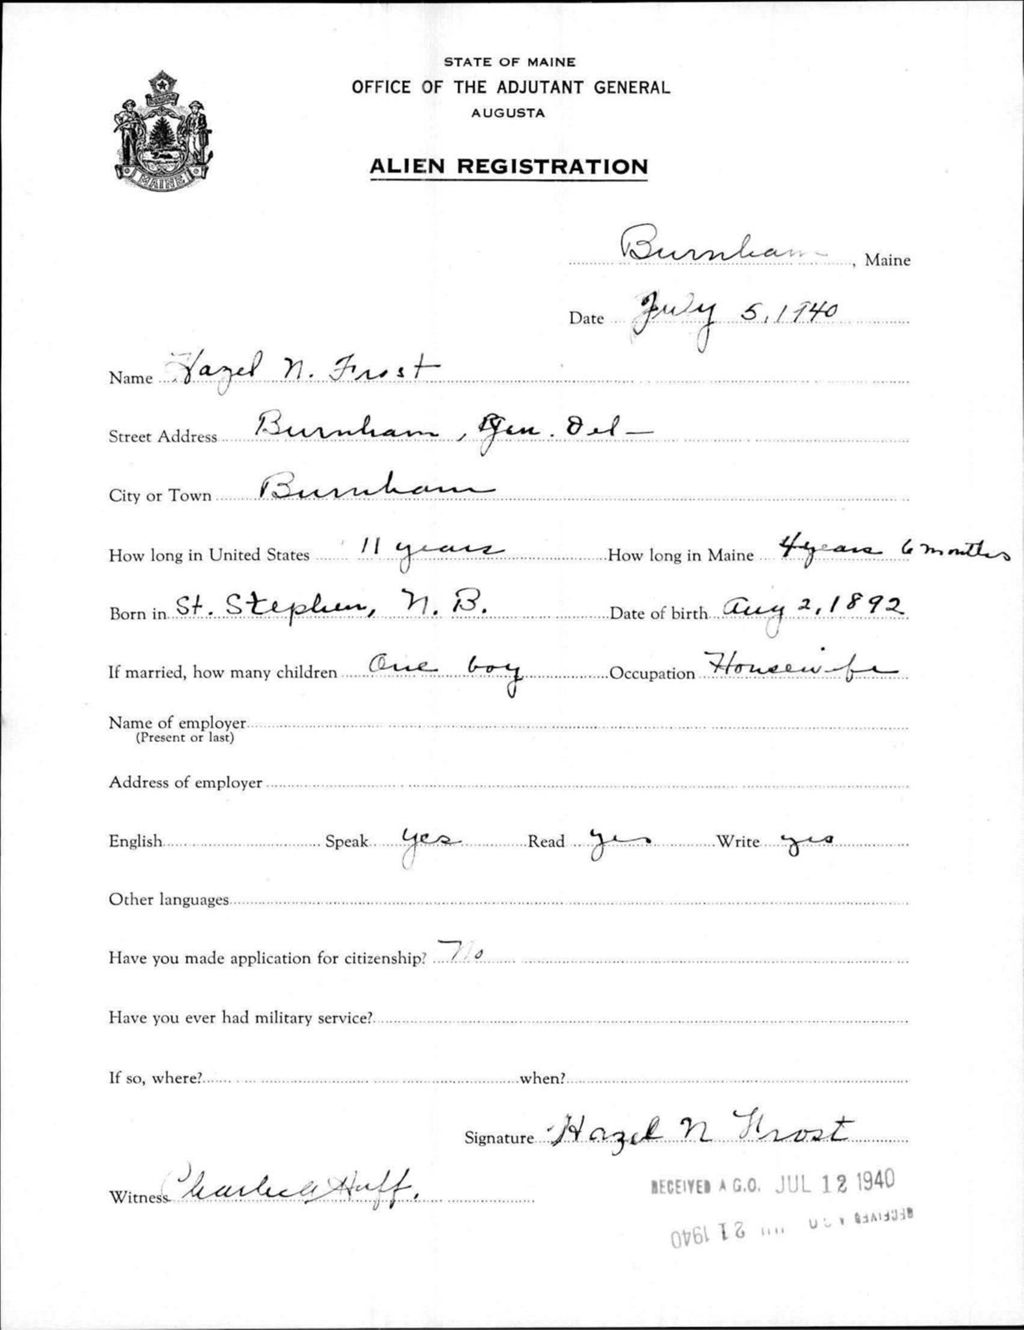 STATE OF MAINE
OFFICE OF THE ADJUTANT GENERAL
AUGUSTA
ALIEN REGISTRATION
MAINE
Burnham, Maine
Date July 5, 1940
Name Hazel N. Frost
Street Address Burnham, Gen. Del-
City or Town Burnham
How long in United States 11 years How long in Maine 4 years 6 months
Born in St. Stephen, N. B. Date of birth Aug 2, 1892
If married, how many children One boy Occupation Housewife
Name of employer
(Present or last)
Address of employer
English Speak yes Read yes Write yes
Other languages
Have you made application for citizenship? No
Have you ever had military service?
If so, where? when?
Signature Hazel N Frost
Witness Huff.
RECEIVED A.G.O. JUL 12 1940
RECEIVED 12 1940